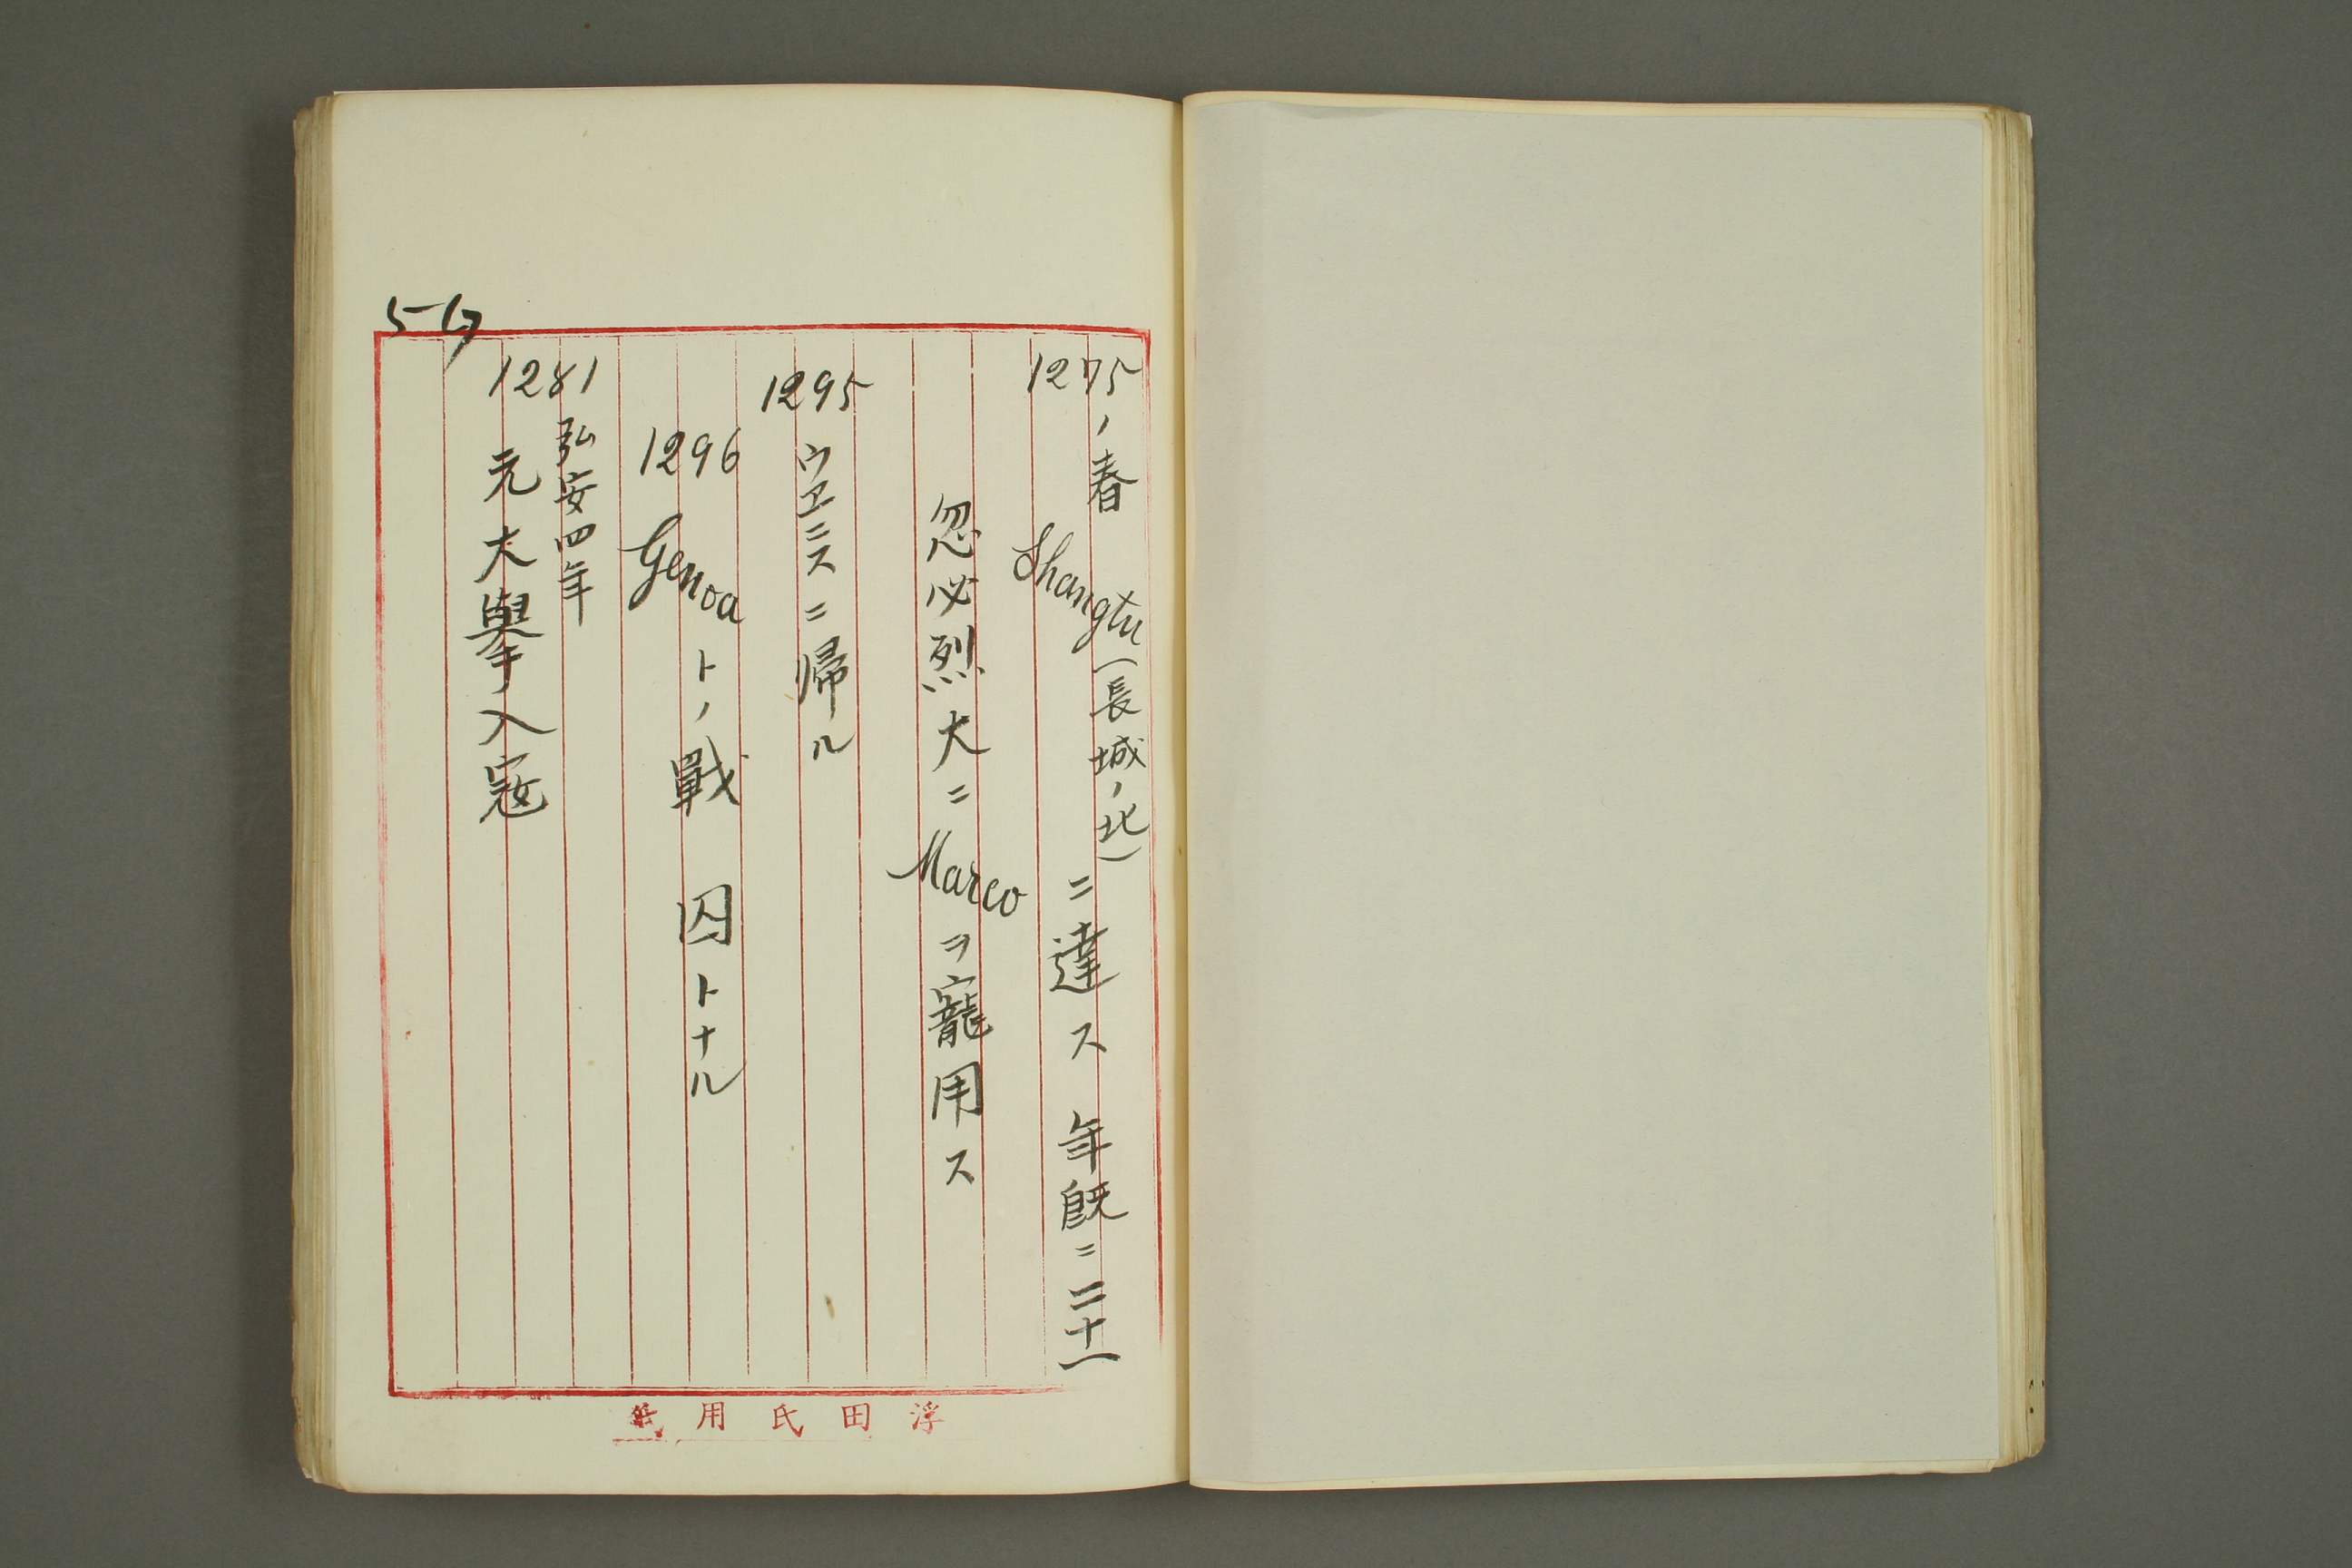 1275ノ春 Shangtu(長城ノ北)ニ達ス 年既ニ二十一
忽必烈大ニMarcoヲ寵用ス
1295 ウエニスニ帰ル
1296 Genoaトノ戰 囚トナル
1281 弘安四年
元大擧入寇
浮田氏用紙